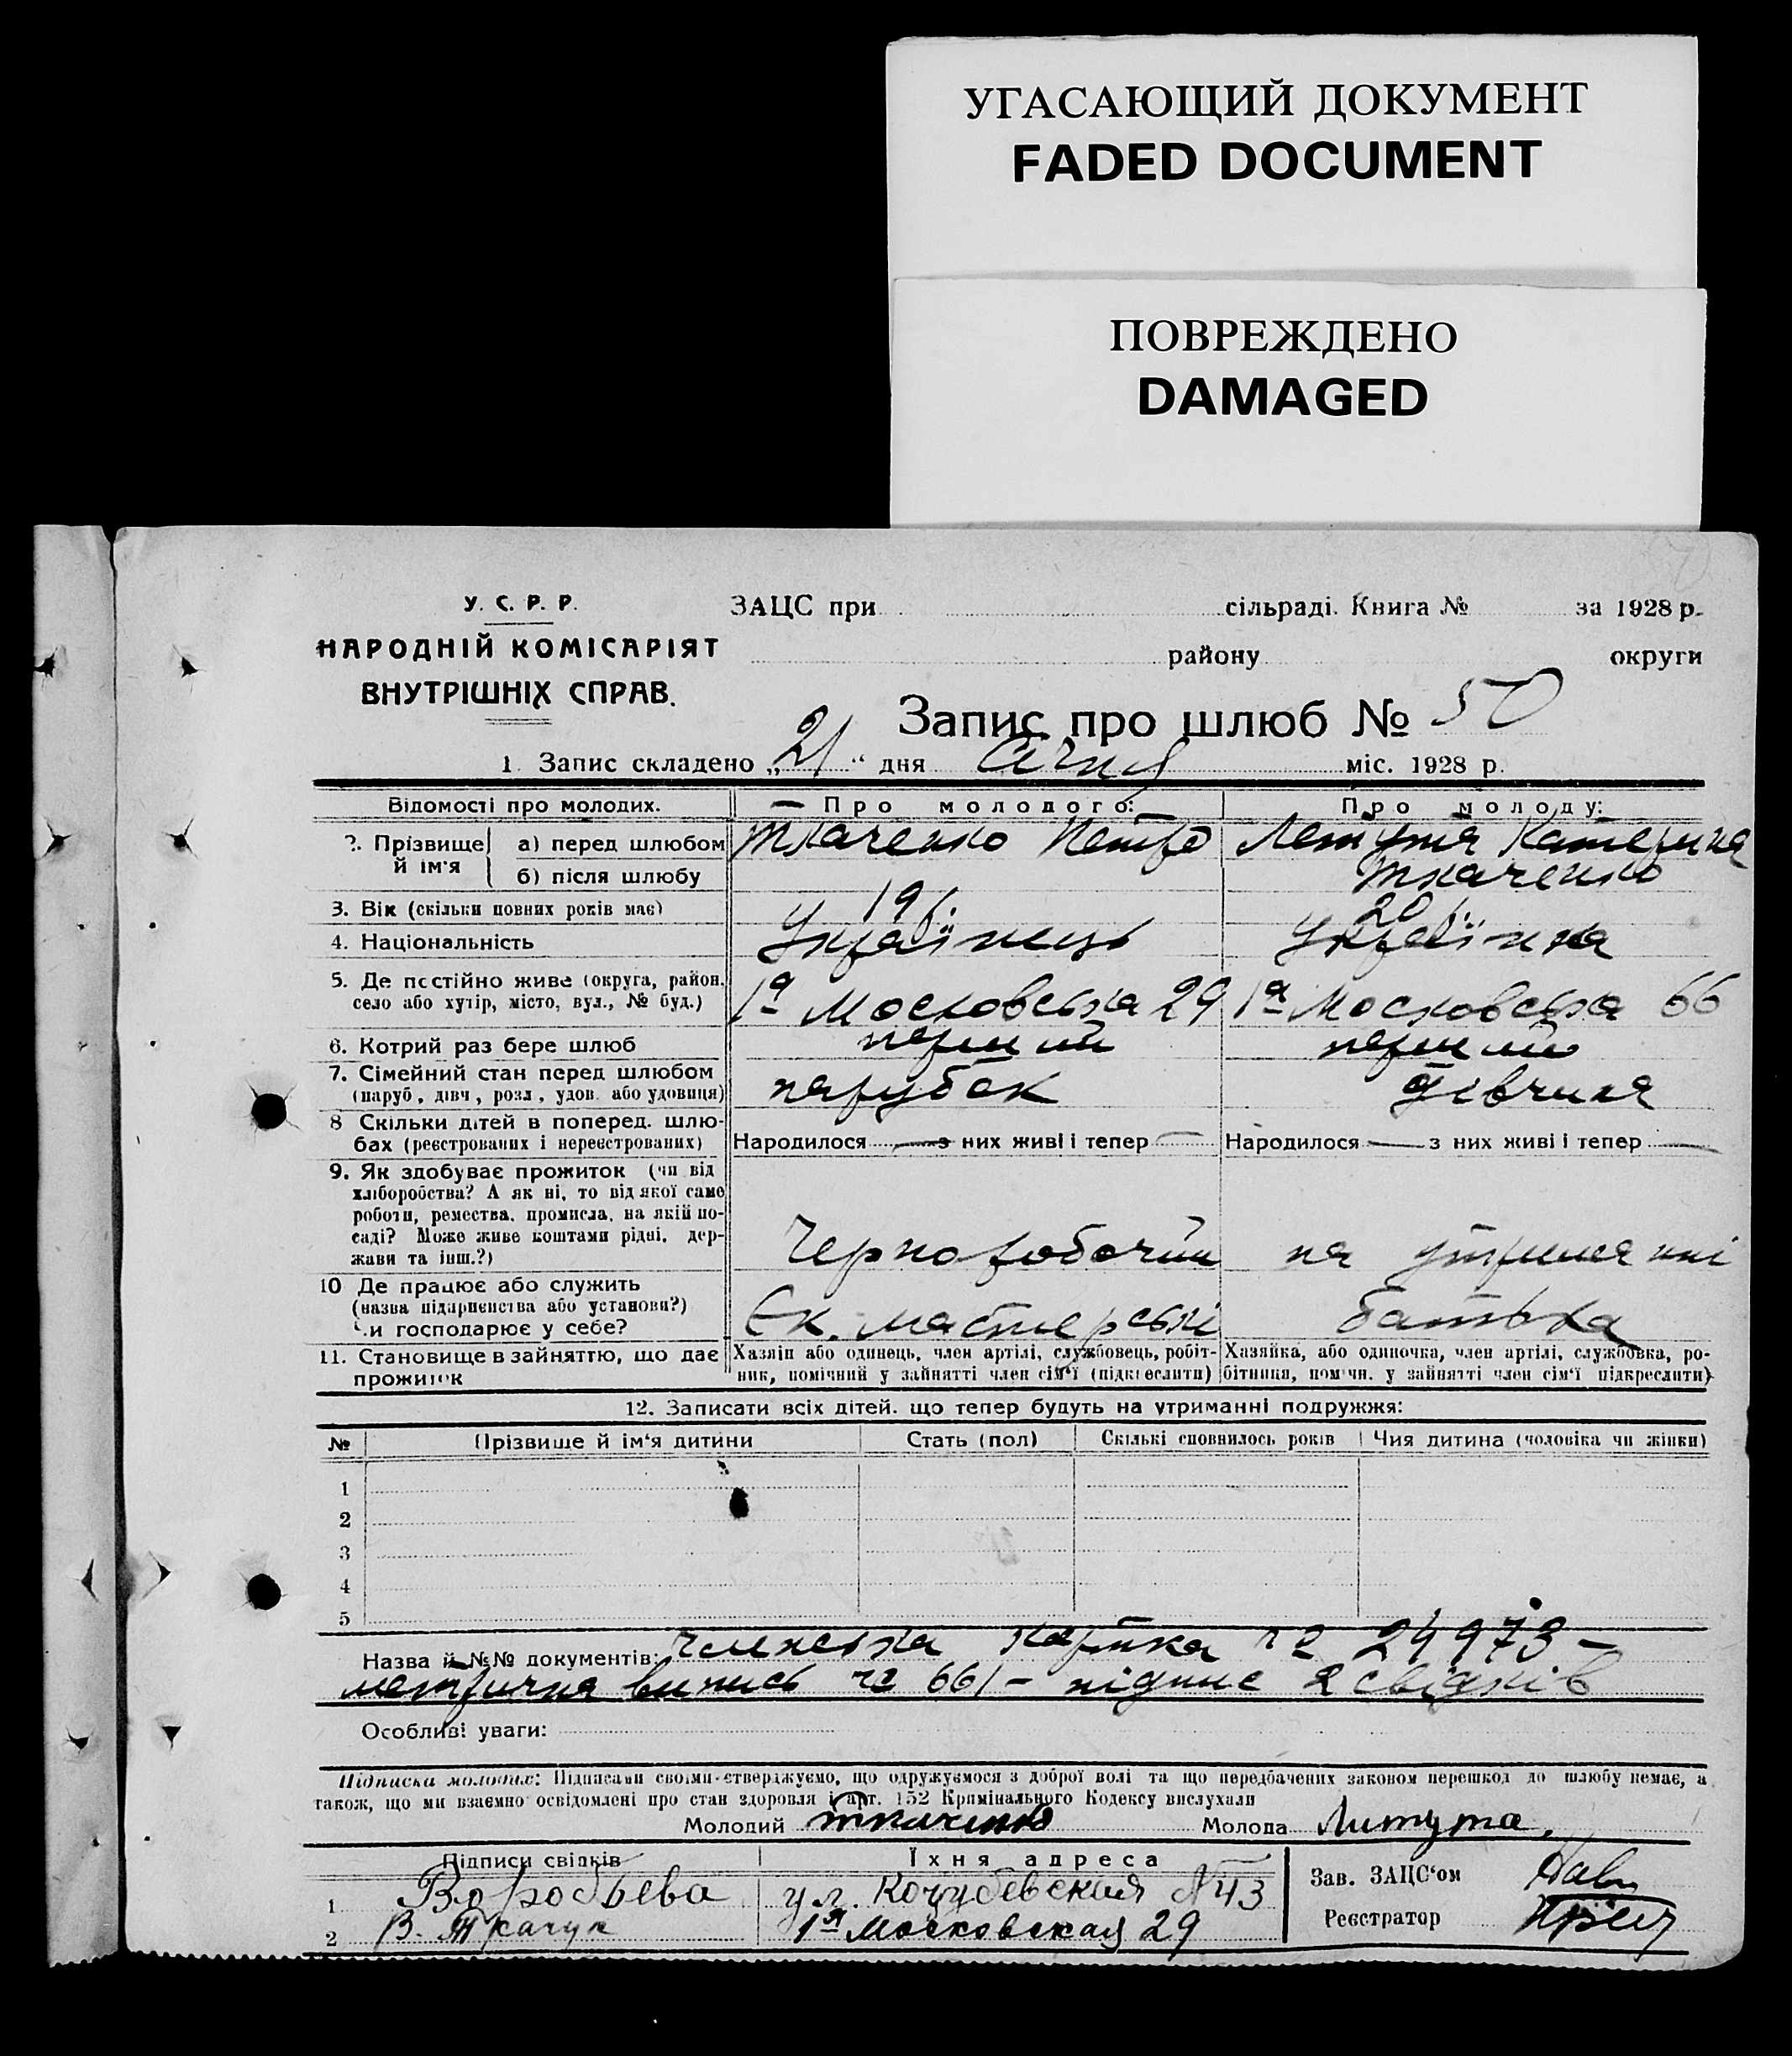 УГАСАЮЩИЙ ДОКУМЕНТ
FADED DOCUMENT
ПОВРЕЖДЕНО
DAMAGED
У. С. Р. Р.
НАРОДНІЙ КОМІСАРІЯТ
ВНУТРІШНІХ СПРАВ.
ЗАЦС при сільраді. Книга № за 1928 р.
району округи
Запис про шлюб № 50
1. Запис складено „21“ дня Січня міс. 1928 р.
Відомості про молодих. Про молодого: Про молоду:
2. Прізвище й ім'я а) перед шлюбом Ткаченко Петро Летута Катерина
б) після шлюбу Ткаченко
3. Вік (скільки повних років має) 19 р. 20 р.
4. Національність Українець Українка
5. Де постійно живе (округа, район, село або хутір, місто, вул., № буд.) 1а Московська 29 1а Московська 66
6. Котрий раз бере шлюб перший перший
7. Сімейний стан перед шлюбом (паруб., дівч., розл., удов. або удовиця) парубок дівчина
8 Скільки дітей в поперед. шлюбах (реєстрованих і нереєстрованих) Народилося — з них живі і тепер — Народилося — з них живі і тепер —
9. Як здобуває прожиток (чи від
хліборобства? А як ні, то від якої саме
роботи, ремества, промисла, на якій по-
саді? Може живе коштами рідні, дер-
жави та інш.?) Чернробочий на утриманні
10 Де працює або служить
(назва підприємства або установи?)
Чи господарює у себе? Ек. мастерські батька
11. Становище в зайняттю, що дає прожиток
Хазяін або одинець, член артілі, службовець, робіт-
ник, помічний у зайнятті член сім'ї (підкреслити)
Хазяйка, або одиночка, член артілі, службовка, ро-
бітниця, помічн. у зайнятті член сім'ї підкреслити)
12. Записати всіх дітей, що тепер будуть на утриманні подружжя:
№ Прізвище й ім'я дитини Стать (пол) Скількі сповнилось років Чия дитина (чоловіка чи жінки)
1
2
3
4
5
Назва й №№ документів: членська картка № 24973 –
метрична випись № 661 – підпис 2 свідків
Особливі уваги:
Підписка молодих: Підписами своїми стверджуємо, що одружуємося з доброї волі та що передбачених законом перешкод до шлюбу немає, а
також, що ми взаємно освідомлені про стан здоровля і арт. 152 Кримінального Кодексу вислухали
Молодий Ткаченко Молода Литута.
Підписи свідків Їхня адреса
1 Воробьева ул. Кочубевская № 43
2 В. Ткачук 1ая Московская 29
Зав. ЗАЦС'ом
Реєстратор